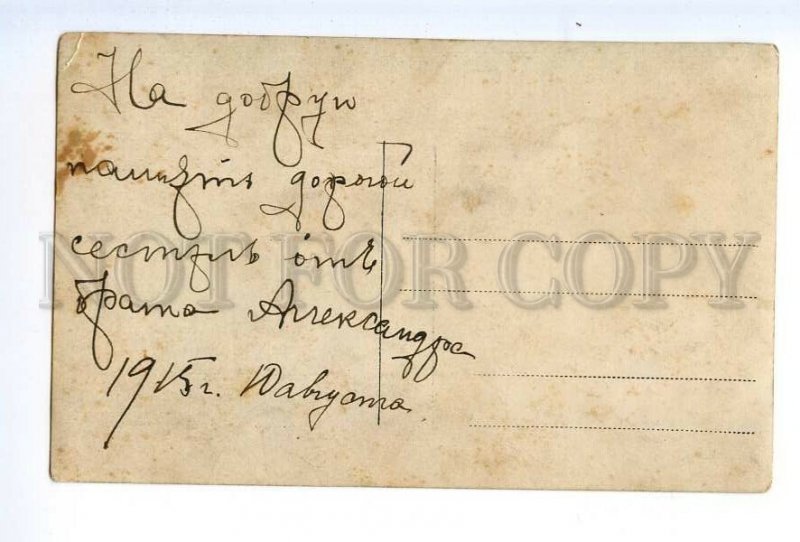 На добрую
память дорогой
сестрѣ отъ
брата Александра
1915 г. 10 августа
NOT FOR COPY